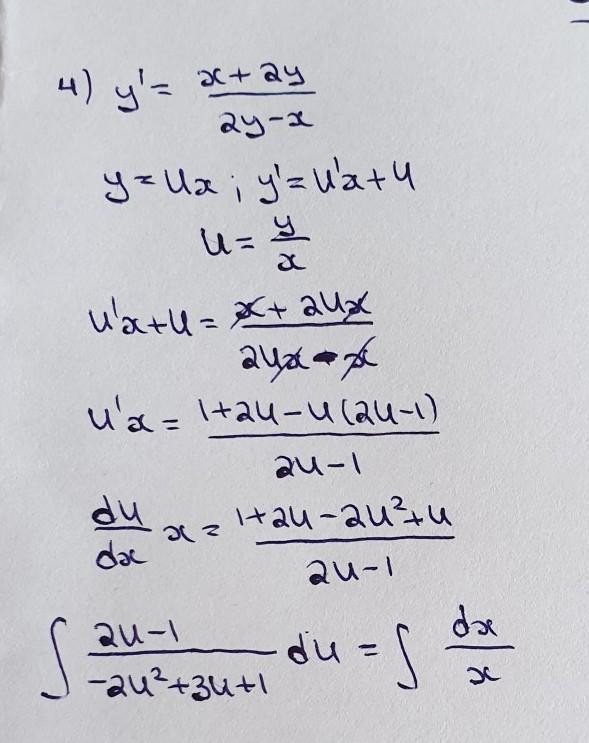 4) y' = (x + 2y)/(2y - x)
y = ux ; y' = u'x + u
u = y/x
u'x + u = (x + 2ux)/(2ux - x)
u'x = (1 + 2u - u(2u - 1))/(2u - 1)
du/dx x = (1 + 2u - 2u² + u)/(2u - 1)
∫ (2u - 1)/(-2u² + 3u + 1) du = ∫ dx/x